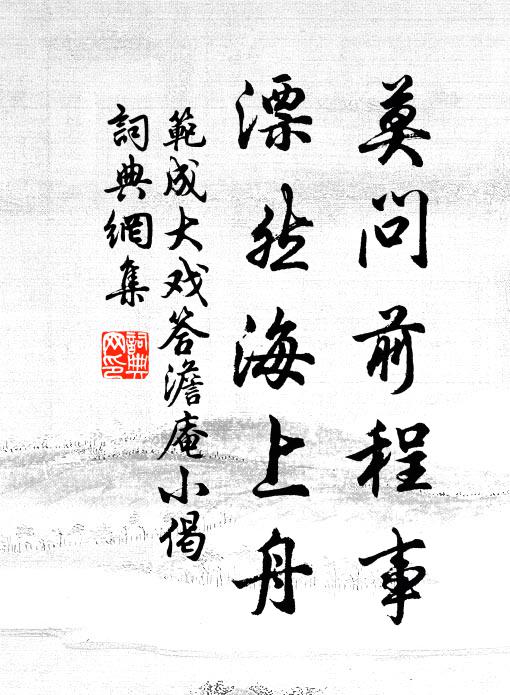 莫问前程事
漂然海上舟
範成大戏答澹庵小偈
詞典網集
詞典
网印